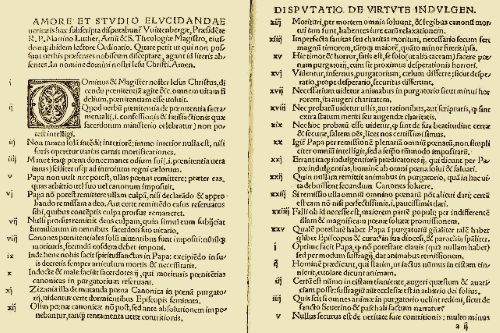 AMORE ET STVDIO ELVCIDANDAE
ueritatis hæc subscripta disputabuntur Vuittenbergæ, Præsidẽte
R. P. Martino Luther, Artiũ & S. Theologiæ Magistro, eiusdemq
ibidem lectore Ordinario. Quare petit ut qui non possunt
uerbis præsentes nobiscum disceptare, agant id literis absentes
In nomine domini nostri Iesu Christi, Amen.
i DOminus & Magister noster Iesus Christus, dicendo
pœnitentiã agite &c. omnem uitam fidelium,
pœnitentiam esse uoluit.
ij Quod uerbũ pœnitentia de pœnitentia sacramentali
(.i. confessionis & satisfactionis quæ
sacerdotum ministerio celebratur) non potest
intelligi.
iij Non tamen solã intẽdit interiorẽ: immo interior nulla est, nisi
foris operetur uarias carnis mortificationes.
iiij Manet itaq pœna donec manet odium sui (.i. pœnitentia uera
intus) scilicet usq ad introitum regni cœlorum.
v Papa non uult nec potest, ullas pœnas remittere: præter eas,
quas arbitrio uel suo uel canonum imposuit.
vi Papa nõ potest remittere ullam culpã, nisi declarãdo & approbando
remissam a deo, Aut certe remittẽdo casus reseruatos
sibi, quibus contẽptis culpa prorsus remaneret.
vij Nulli prorsus remittit deus culpam, quin simul eum subijciat
humiliatum in omnibus sacerdoti suo uicario.
viij Canones pœnitentiales solũ uiuentibus sunt impositi: nihilq
morituris, secundũ eosdem debet imponi.
ix Inde bene nobis facit spiritussanctus in Papa: excipiẽdo in suis
decretis semper articulum mortis & necessitatis.
x Indocte & male faciũt sacerdotes ij, qui morituris pœnitẽtias
canonicas in purgatorium reseruant.
xi Zizania illa de mutanda pœna Canonica in pœnã purgatorij,
uidentur certe dormientibus Episcopis seminata.
xij Olim pœnæ canonicæ nõ post, sed ante absolutionem imponebantur,
tanq tentamenta ueræ contritionis.
DISPVTATIO. DE VIRTVTE INDVLGEN.
xiij Morituri, per mortem omnia soluunt, & legibus canonũ mortui
iam sunt, habentes iure earũ relaxationem.
xiiij Imperfecta sanitas seu charitas morituri, necessario secum fert
magnũ timorem, tãtoq maiorẽ, quãto minor fuerit ipsa.
xv Hic timor & horror, satis est, se solo (ut alia taceam) facere pœnam
purgatorij, cum sit proximus desperationis horrori.
xvi Videntur, infernus, purgatorium, cælum differre: sicut desperatio,
prope desperatio, securitas differunt.
xvij Necessarium uidetur animabus in purgatorio sicut minui horrorem,
ita augeri charitatem.
xviij Nec probatũ uidetur ullis, aut rationibus, aut scripturis, q sint
extra statum meriti seu augendæ charitatis.
xix Nec hoc probatũ esse uidetur, q sint de sua beatitudine certæ
& securæ, saltem oẽs, licet nos certissimi simus.
xx Igit Papa per remissionẽ plenariã omniũ pœnarũ, non simpliciter
omniũ intelligit, sed a seipso tantũmodo impositarũ.
xxi Errant itaq indulgentiarũ prædicatores ij, qui dicunt per Papæ
indulgentias, hominẽ ab omni pœna solui & saluari.
xxij Quin nullam remittit animabus in purgatorio, quã in hac uita
debuissent secundum Canones soluere.
xxiij Si remissio ulla omniũ omnino pœnarũ põt alicui dari; certũ
est eam nõ nisi perfectissimis, .i. paucissimis dari.
xxiiij Falli ob id necesse est, maiorem partẽ populi: per indifferentẽ
illam & magnificam pœnæ solutæ promissionem.
xxv Qualẽ potestatẽ habet Papa ĩ purgatoriũ generaliter talẽ habet
quilibet Episcopus & curatus in sua diocesi, & parochia specialiter.
i Optime facit Papa, quod nõ potestate clauis (quã nullam habet)
sed per modum suffragij, dat animabus remissionem.
ij Hominẽ prædicant, qui statim, ut iactus nummus in cistam tinnierit,
euolare dicunt animam.
iij Certũ est nũmo in cistam tinniente, augeri quæstum & auariciam
posse. suffragiũ aũt ecclesiæ est in arbitrio dei solius.
iiij Quis scit si omnes animæ in purgatorio uelint redimi, sicut de
sancto Seuerino & paschali factum narratur.
v Nullus securus est de ueritate suæ contritionis, multo minus
a ij